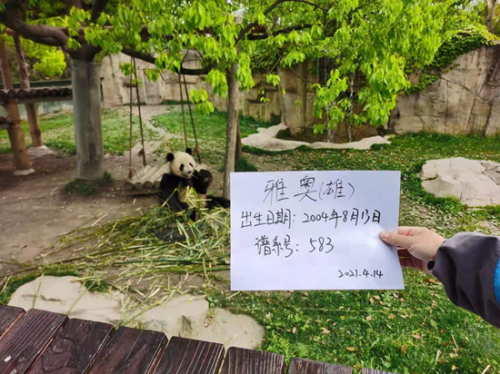 雅奥(雄)
出生日期：2004年8月13日
谱系号：583
2021.4.14